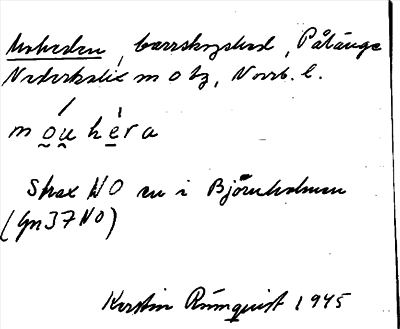 Moheden, barrskogsbed, Påtänge
Nederkalix m o tg, Norrb. l.
mo̰ṵhe̱ra
Strax NO en i Björnholmen
(Gn 37 NO)
Kerstin Rönnquist 1945